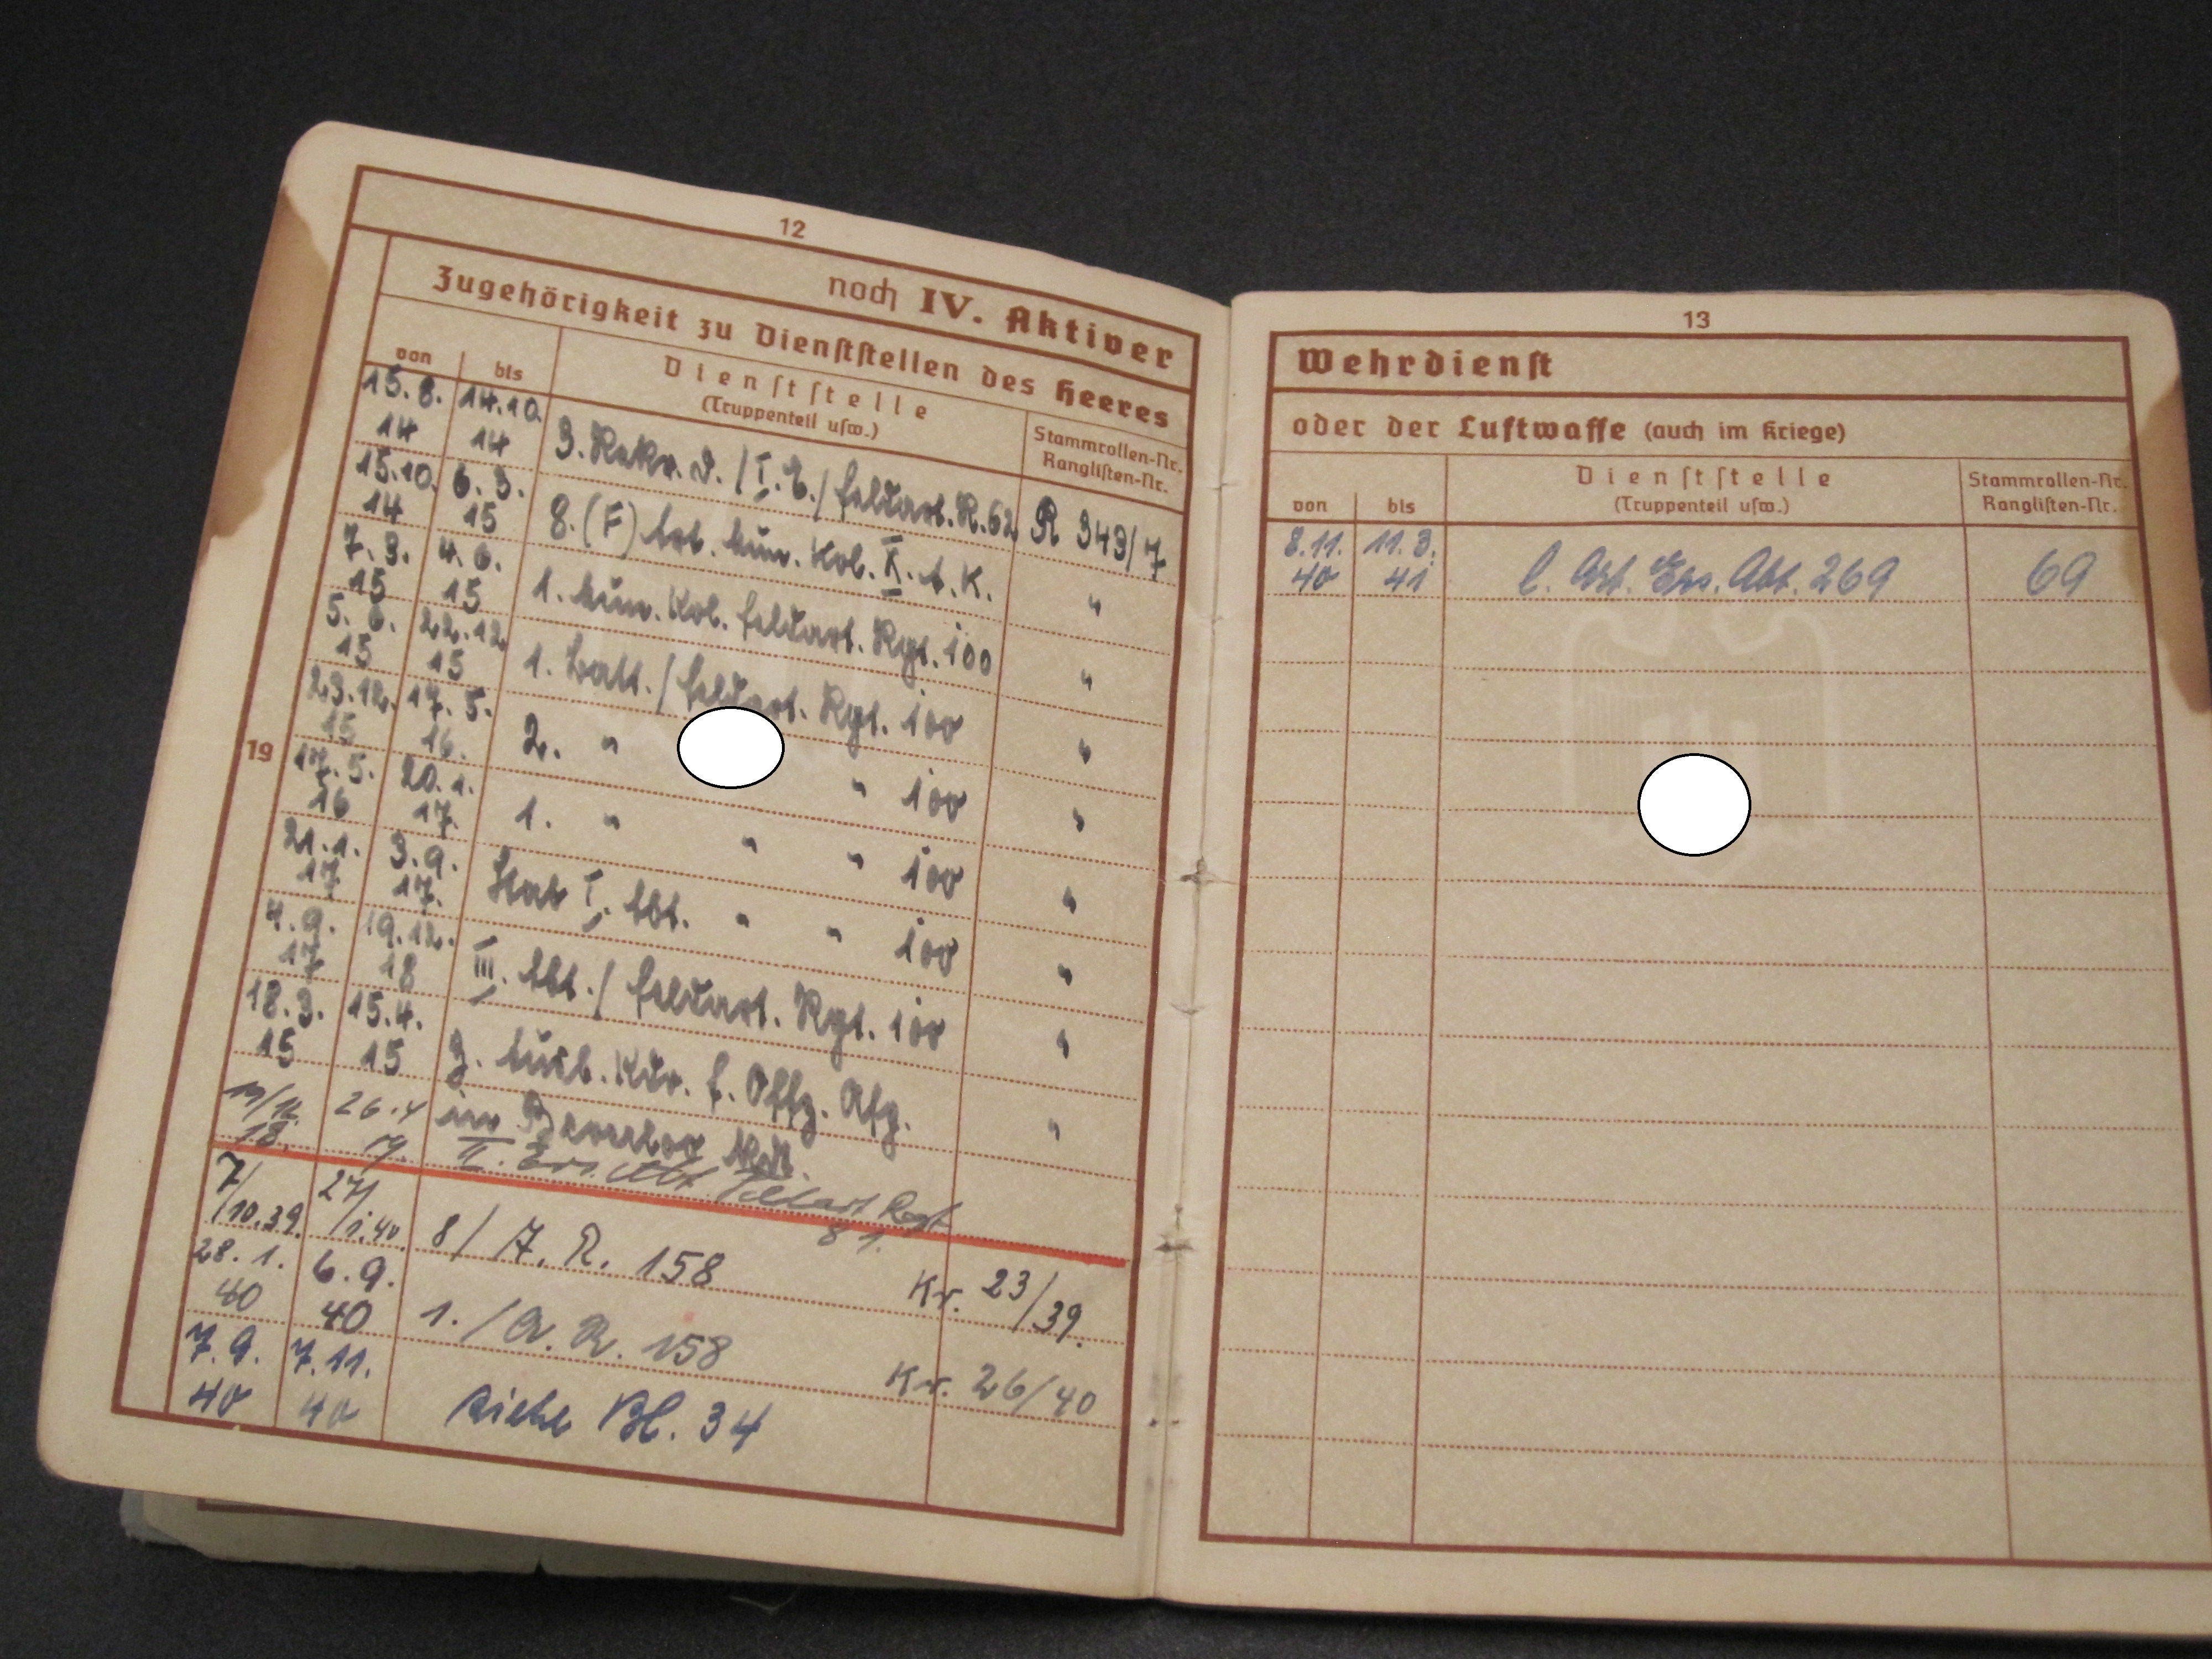 12
noch IV. Aktiver
Zugehörigkeit zu Dienststellen des Heeres
von bis Dienststelle (Truppenteil usw.) Stammrollen-Nr. Ranglisten-Nr.
15.8. 14 14.10. 14 3. Rekr. D. / I. E. / Feldart. R. 62 R 343/7
15.10. 14 6.3. 15 8. (F) Art. Mun. Kol. X. A. K. "
7.3. 15 4.6. 15 1. Mun. Kol. Feldart. Rgt. 100 "
5.6. 15 22.12. 15 1. Batt. / Feldart. Rgt. 100 "
23.12. 15 17.5. 16. 2. " " 100 "
19
17.5. 16 20.1. 17. 1. " " " 100 "
21.1. 17 3.9. 17. Stab I. Abt. " " 100 "
4.9. 17 19.12. 18 III. Abt. / Feldart. Rgt. 100 "
18.3. 15 15.4. 15 z. Ausb. Kur. f. Offz. Afz. "
im
18. 26.4 19. II. Ers. Abt. Feldart Regt 81.
7/10.39. 27/1.40. 8/ A. R. 158 Kr. 23/39.
28.1. 40 6.9. 40 1. / A. R. 158 Kr. 26/40
7.9. 40 7.11. 40 siehe Bl. 34
13
Wehrdienst
oder der Luftwaffe (auch im Kriege)
von bis Dienststelle (Truppenteil usw.) Stammrollen-Nr. Ranglisten-Nr.
8.11. 40 11.3. 41 l. Art. Ers. Abt. 269 69